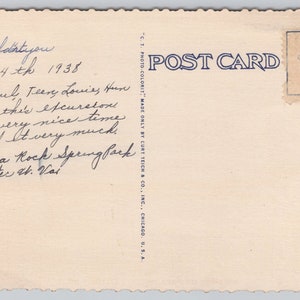 4th 1938
Teen, Louise, Hun
this excursion
very nice time
it very much.
Rock Spring Park
W. Va
"C. T. PHOTO-COLORIT" MADE ONLY BY CURT TEICH & CO., INC., CHICAGO, U.S.A.
POST CARD